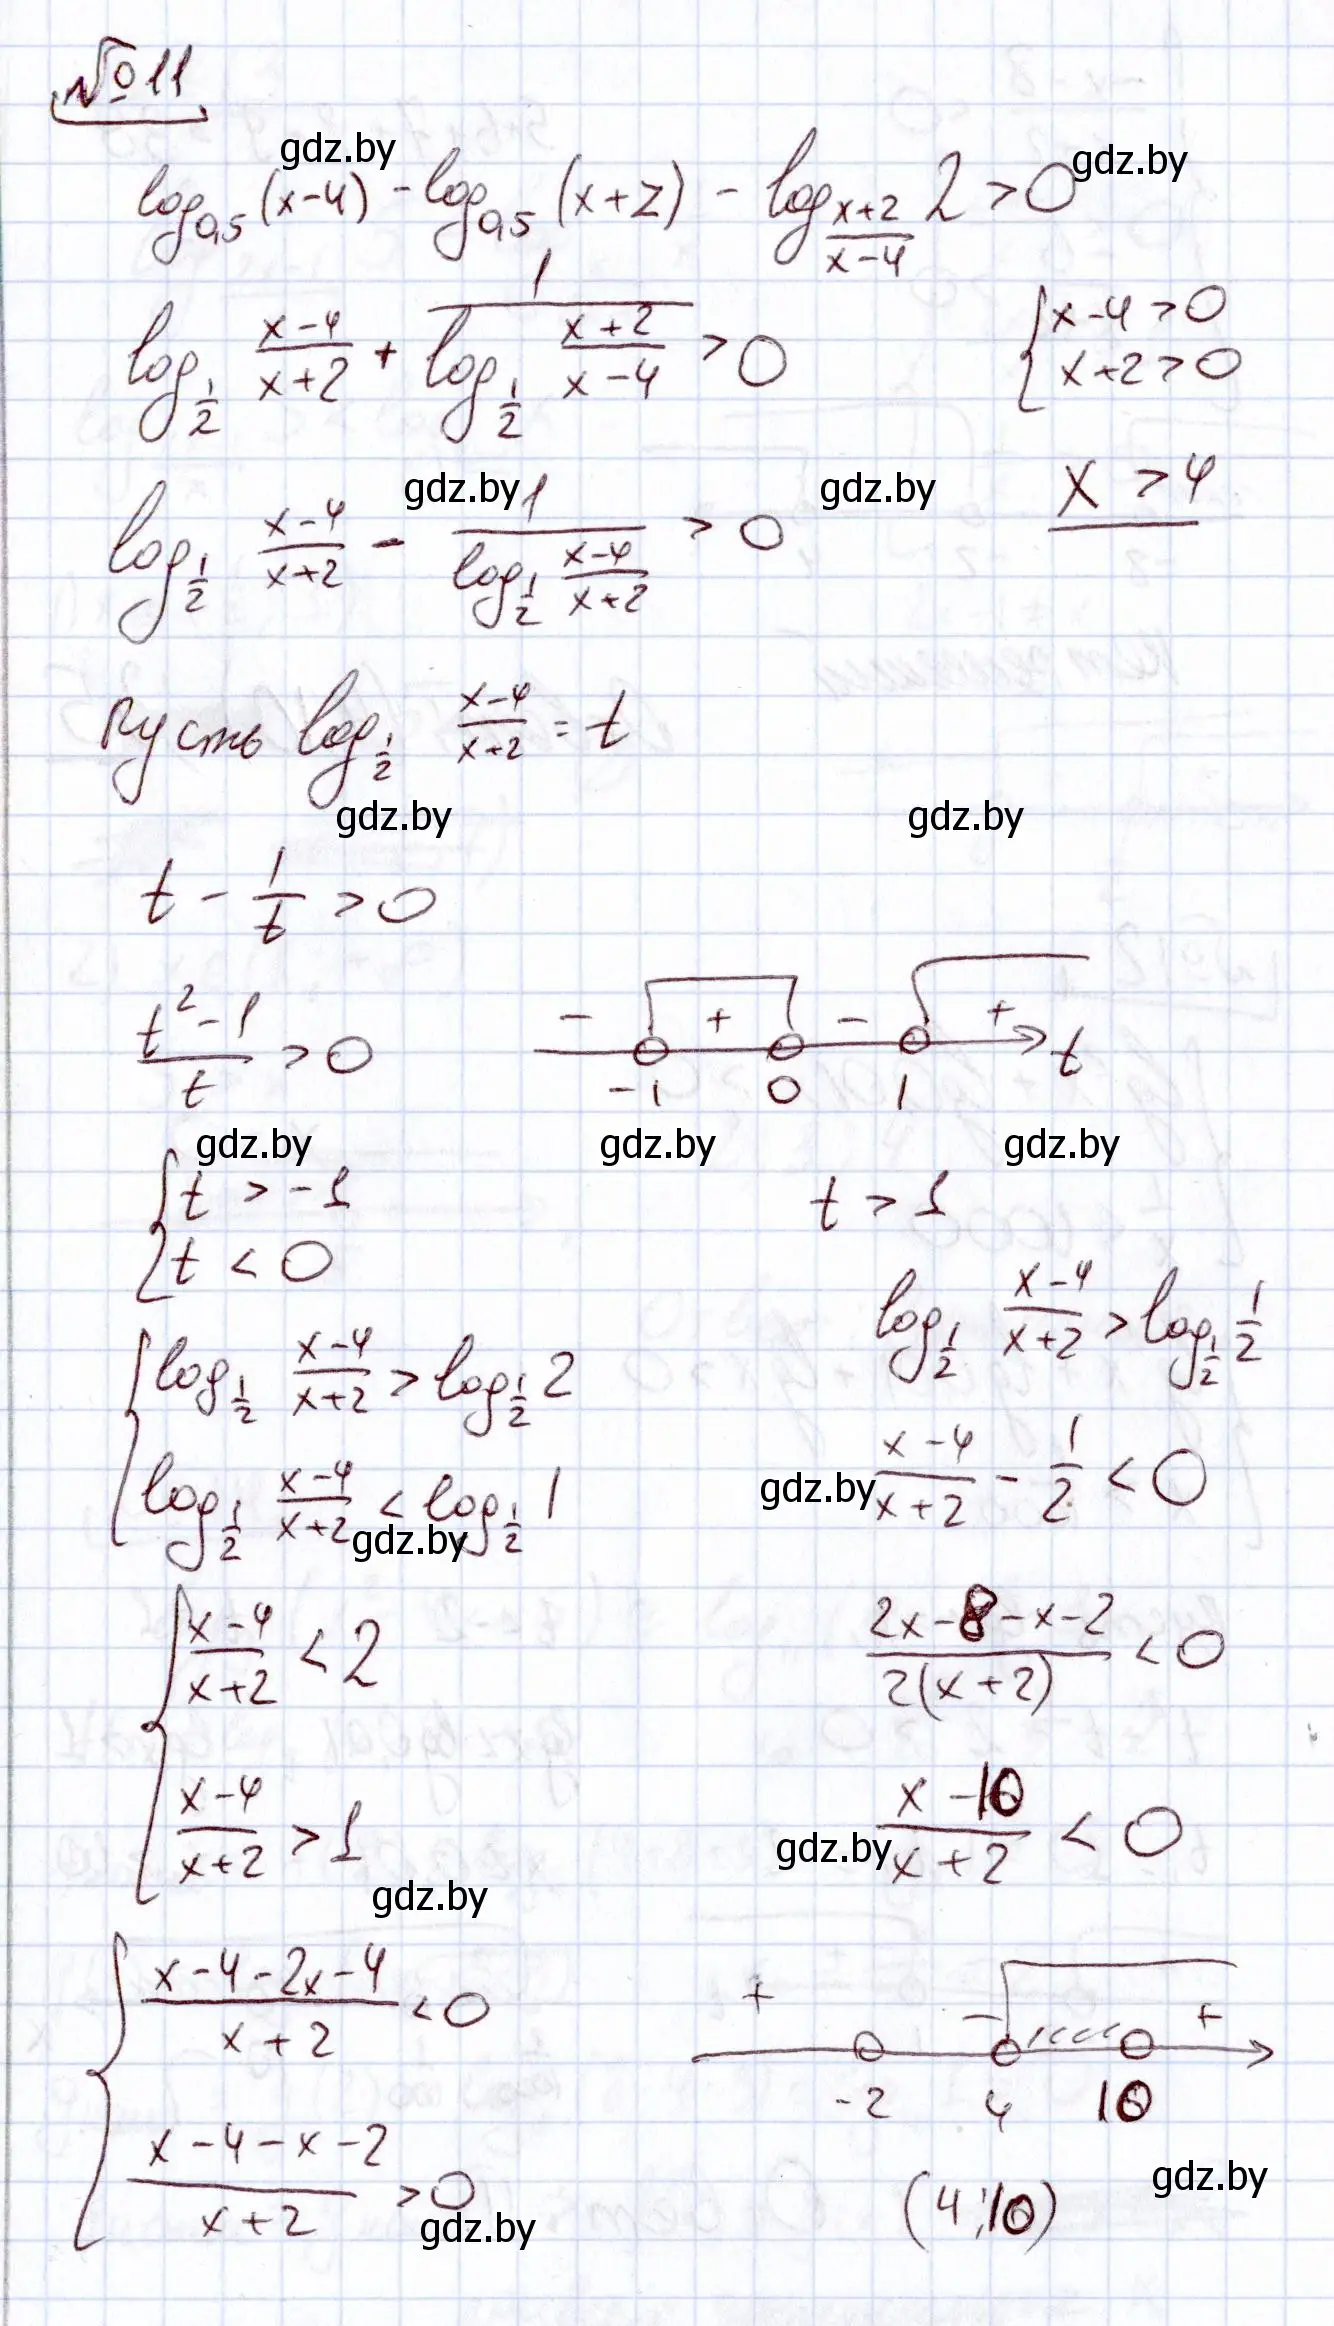 № 11
gdz.by gdz.by
log_{0,5}(x-4) - log_{0,5}(x+2) - log_{\frac{x+2}{x-4}} 2 > 0
log_{\frac{1}{2}} \frac{x-4}{x+2} + \frac{1}{log_{\frac{1}{2}} \frac{x+2}{x-4}} > 0 { x-4 > 0
x+2 > 0
gdz.by gdz.by
log_{\frac{1}{2}} \frac{x-4}{x+2} - \frac{1}{log_{\frac{1}{2}} \frac{x-4}{x+2}} > 0 x > 4
Пусть log_{\frac{1}{2}} \frac{x-4}{x+2} = t
gdz.by gdz.by
t - \frac{1}{t} > 0
\frac{t^2-1}{t} > 0
- + - + t
-1 0 1
gdz.by gdz.by gdz.by
{ t > -1
t < 0
{ log_{\frac{1}{2}} \frac{x-4}{x+2} > log_{\frac{1}{2}} 2
log_{\frac{1}{2}} \frac{x-4}{x+2} < log_{\frac{1}{2}} 1
gdz.by
{ \frac{x-4}{x+2} < 2
\frac{x-4}{x+2} > 1
gdz.by
{ \frac{x-4-2x-4}{x+2} < 0
\frac{x-4-x-2}{x+2} > 0
gdz.by
t > 1
log_{\frac{1}{2}} \frac{x-4}{x+2} > log_{\frac{1}{2}} \frac{1}{2}
gdz.by
\frac{x-4}{x+2} - \frac{1}{2} < 0
\frac{2x-8-x-2}{2(x+2)} < 0
\frac{x-10}{x+2} < 0
gdz.by
+ - +
-2 4 10
gdz.by
(4;10)